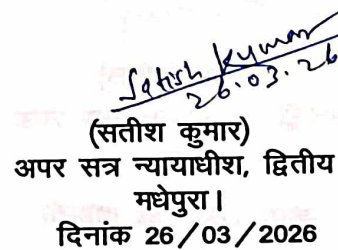 Satish Kumar
26.03.26
(सतीश कुमार)
अपर सत्र न्यायाधीश, द्वितीय
मधेपुरा।
दिनांक 26/03/2026